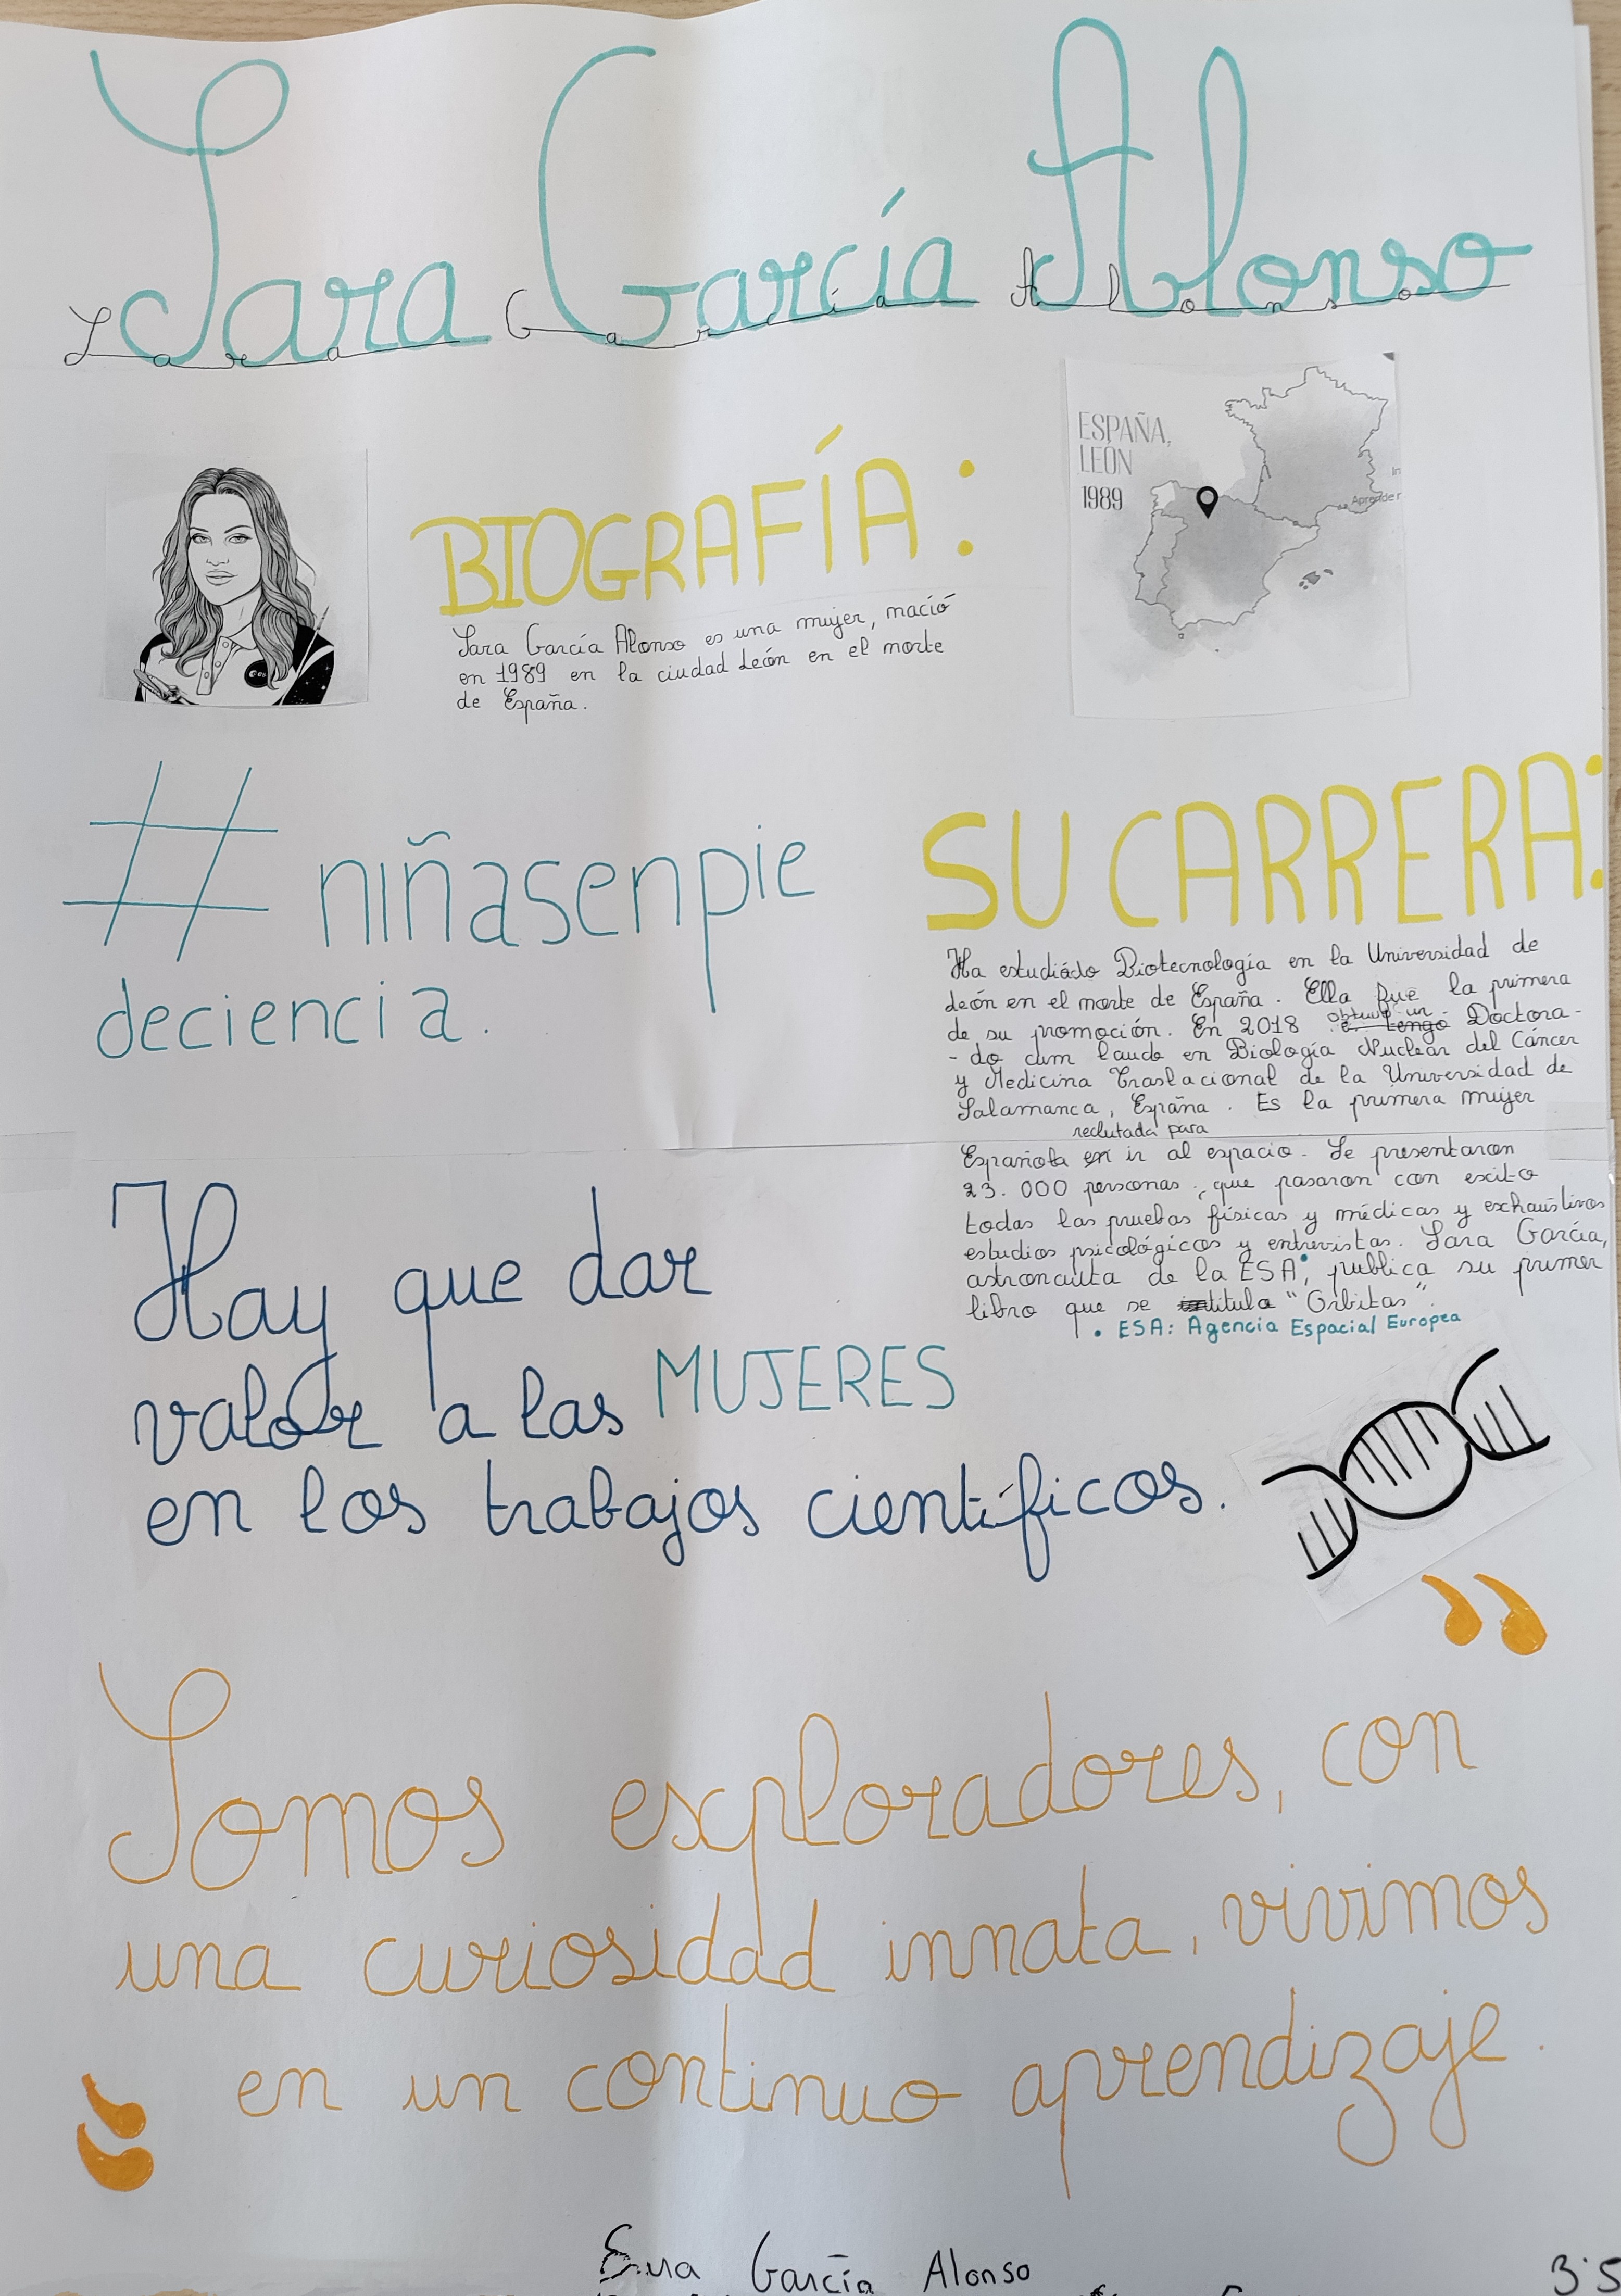 Sara García Alonso
Sara García Alonso
ESPAÑA,
LEÓN
1989
In
Aprende r
BIOGRAFÍA:
Sara García Alonso es una mujer, nació
en 1989 en la ciudad León en el norte
de España.
esa
#niñasenpie
deciencia.
SU CARRERA:
Ha estudiádo Biotecnología en la Universidad de
León en el norte de España. Ella fue la primera
de su promoción. En 2018 obtuvo un Doctora-
-do cum laude en Biología Nuclear del Cáncer
y Medicina Traslacional de la Universidad de
Salamanca, España. Es la primera mujer
reclutada para
Española en ir al espacio. Se presentaron
23.000 personas, que pasaron con exito
todas las pruebas físicas y médicas y exhaustivos
estudios psicológicos y entrevistas. Sara García,
astronauta de la ESA, publica su primer
libro que se titula "Orbitas".
• ESA: Agencia Espacial Europea
Hay que dar
valor a las MUJERES
en los trabajos científicos.
"
Somos exploradores, con
una curiosidad innata, vivimos
en un continuo aprendizaje.
"
García Alonso
3°5